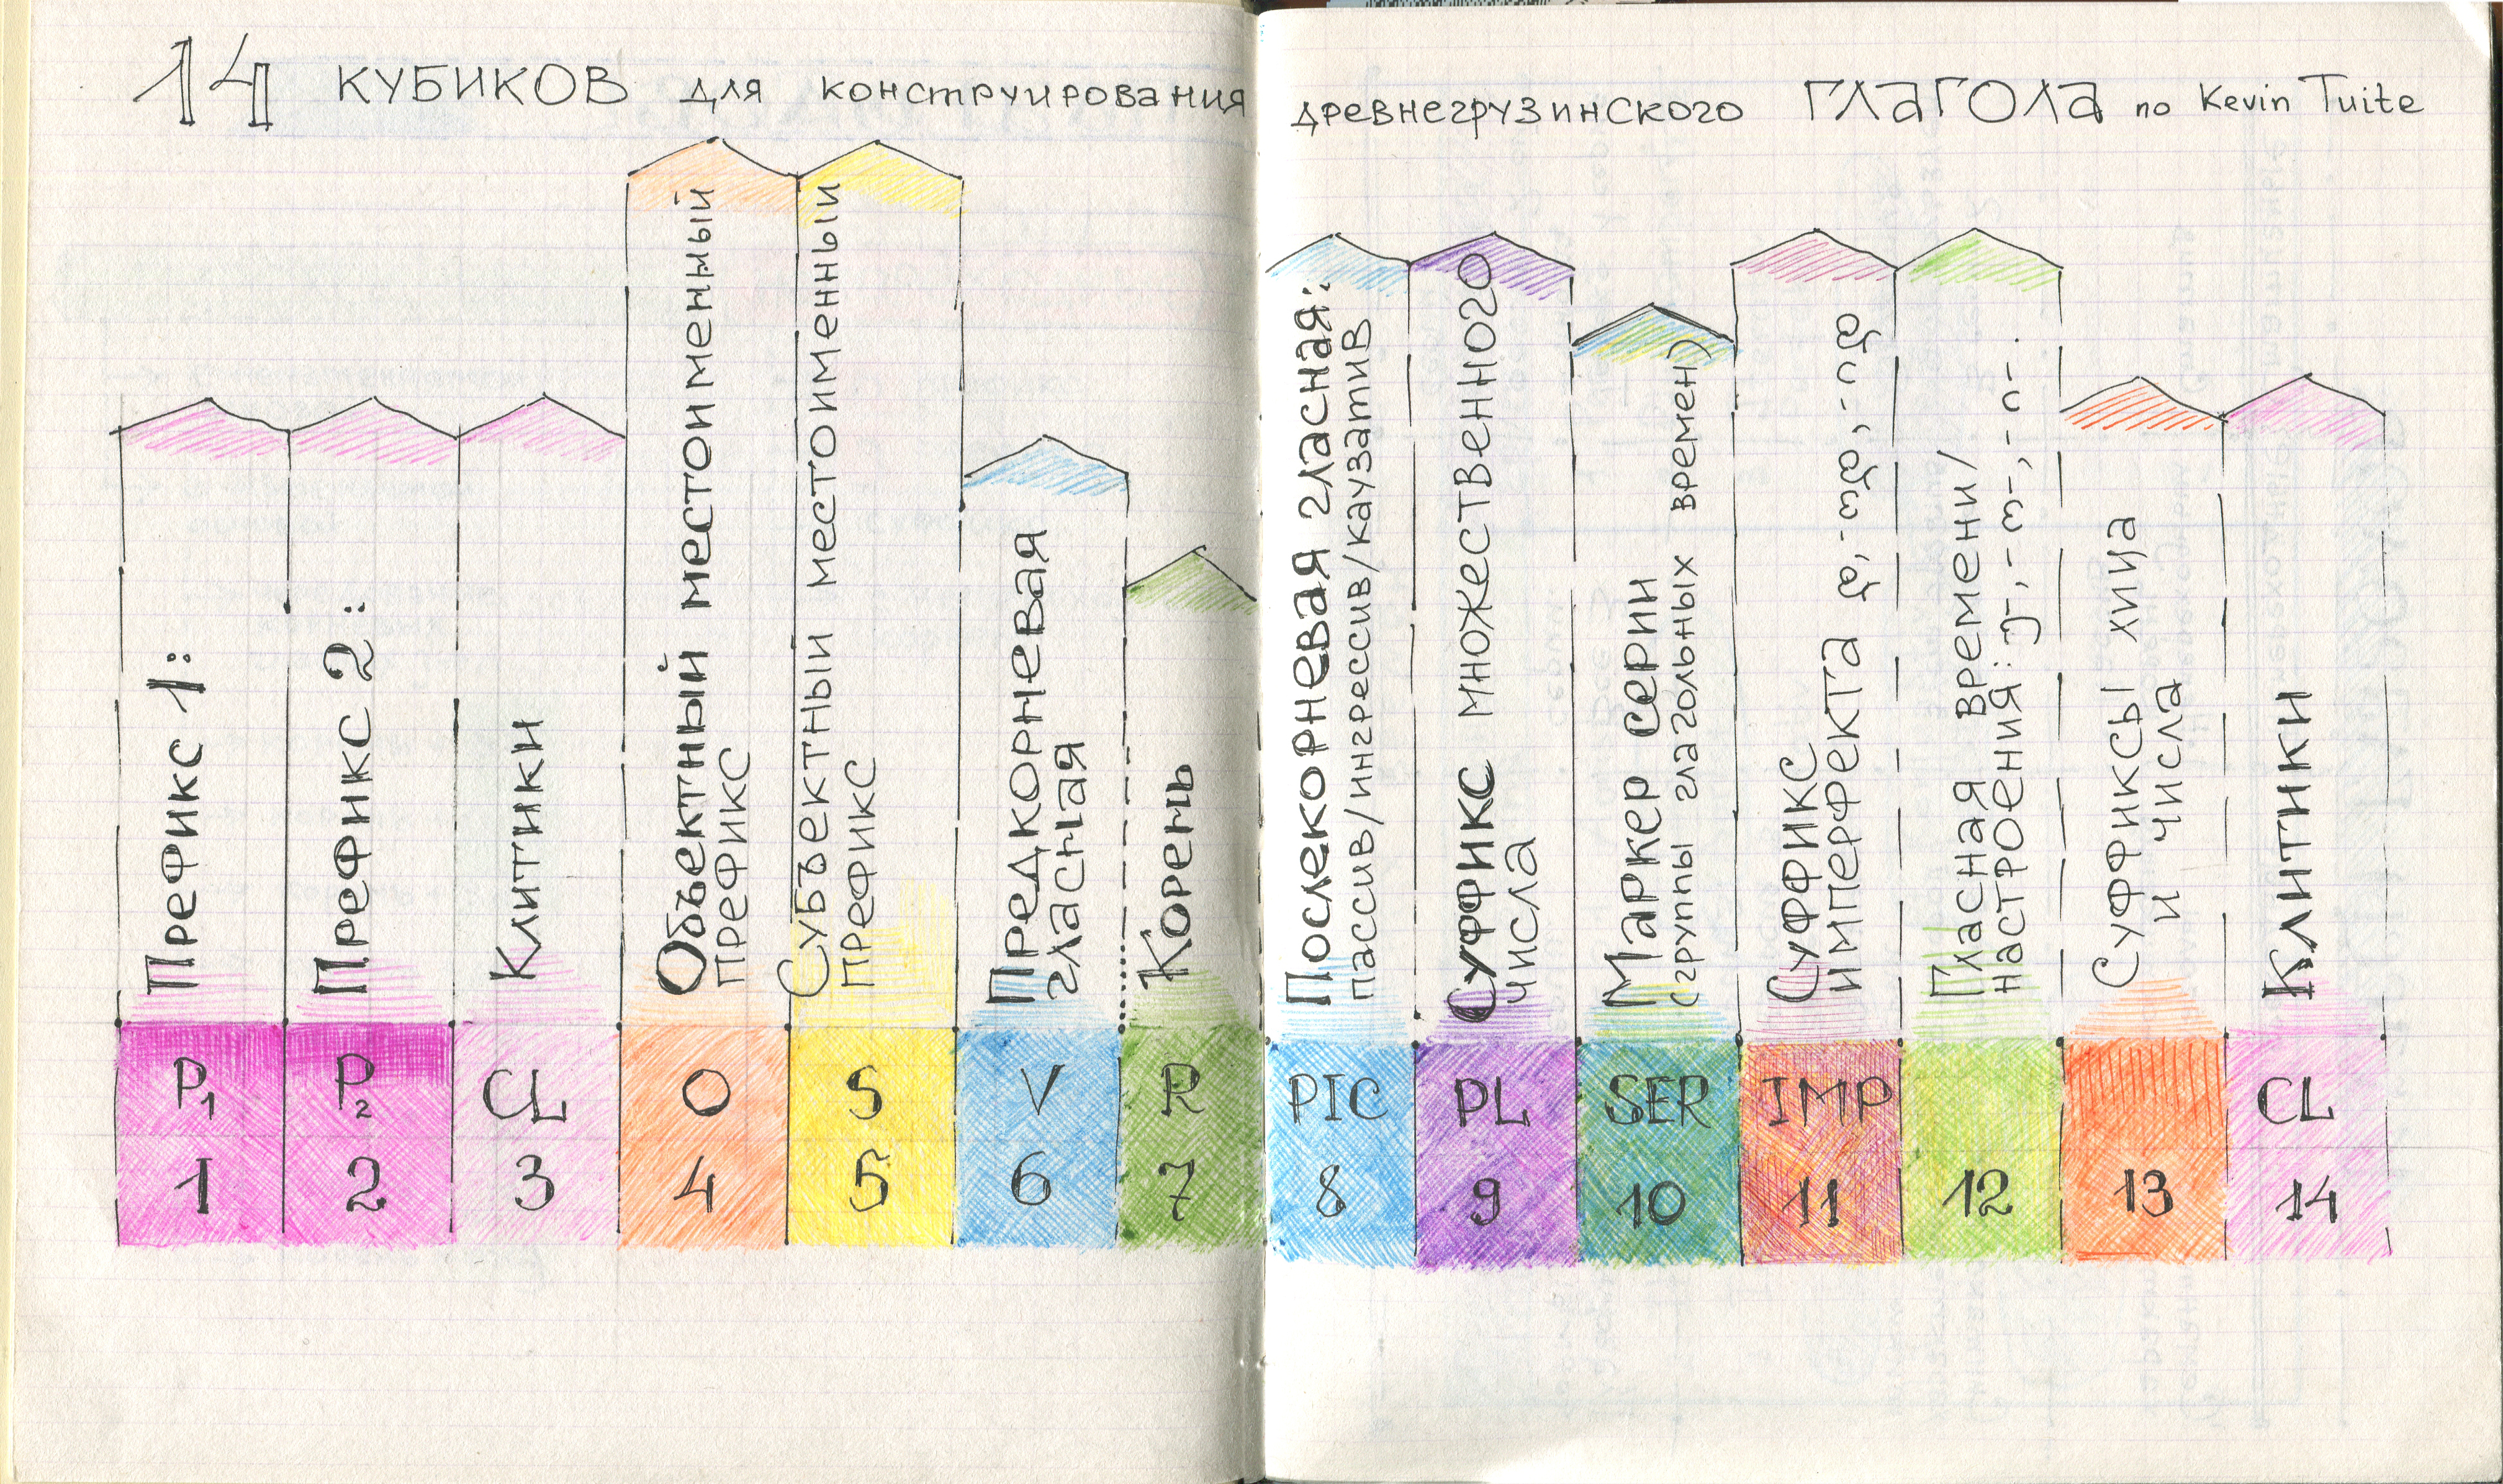 14 КУБИКОВ для конструирования древнегрузинского ГЛАГОЛА по Kevin Tuite
Префикс 1:
Префикс 2:
Клитики
Объектный местоименный
префикс
Субъектный местоименный
префикс
Предкорневая
гласная
Корень
Послекорневая гласная:
пассив/ингрессив/каузатив
Суффикс множественного
числа
Маркер серии
(группы глагольных времен)
Суффикс
имперфекта დ,-ოდ,-იდ
Гласная времени/
настроения: ე-,-ო-,-ი-.
Суффиксы хица
и числа
Клитики
P1 P2 CL O S V R PIC PL SER IMP CL
1 2 3 4 5 6 7 8 9 10 11 12 13 14